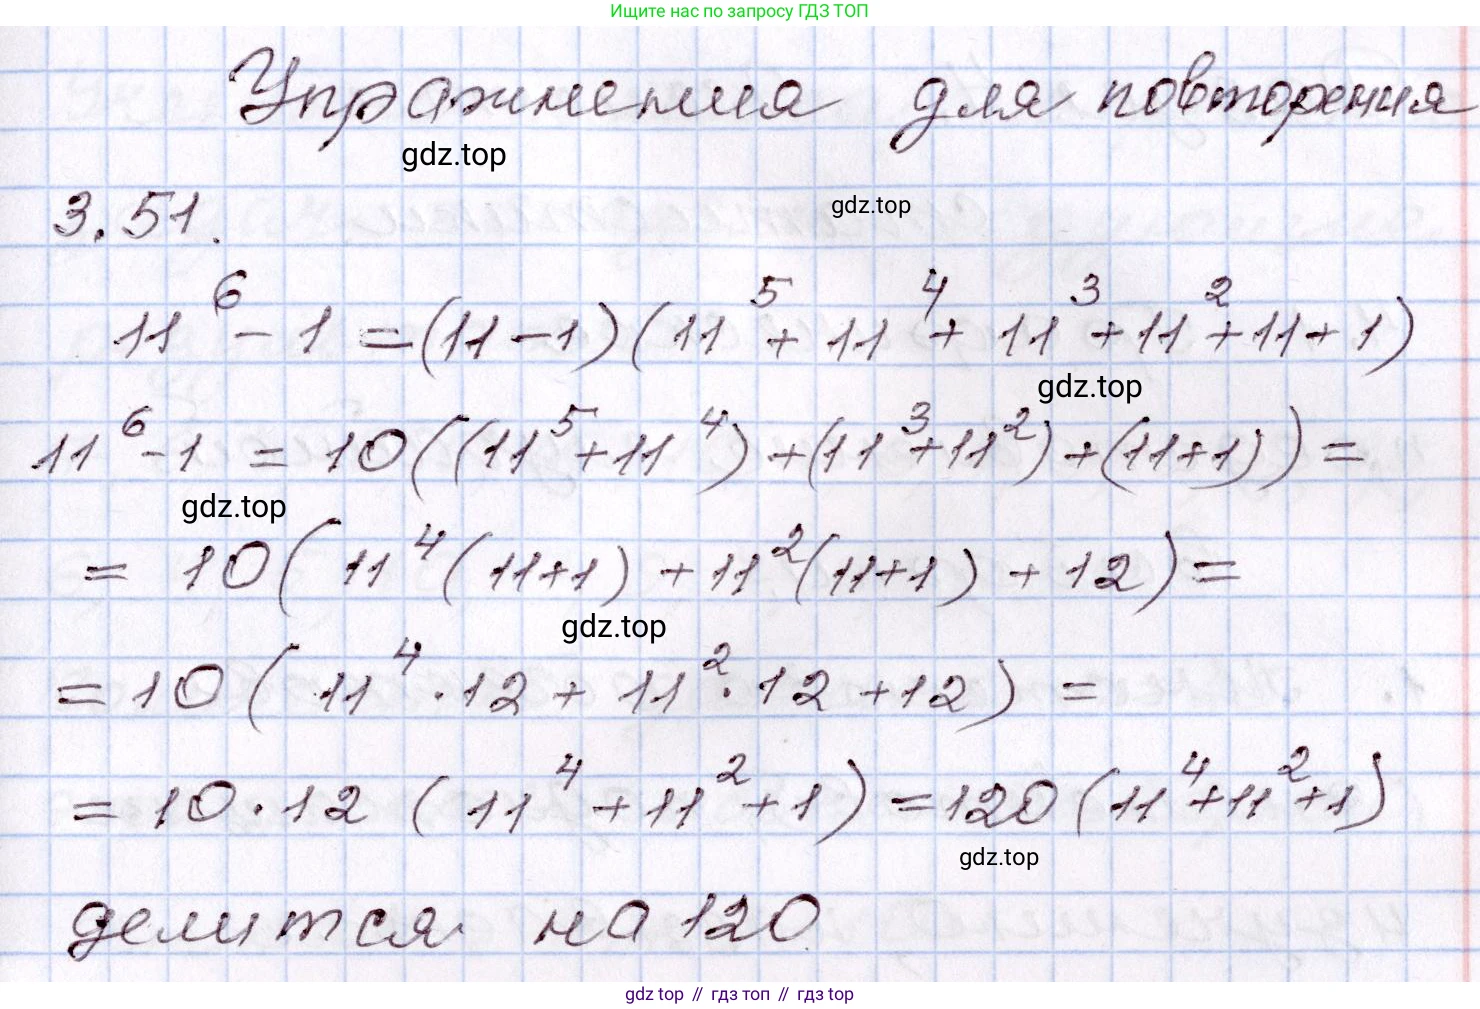 Ищите нас по запросу ГДЗ ТОП
Упражнения для повторения
gdz.top
3.51.
gdz.top
11⁶ - 1 = (11 - 1)(11⁵ + 11⁴ + 11³ + 11² + 11 + 1)
gdz.top
11⁶ - 1 = 10((11⁵ + 11⁴) + (11³ + 11²) + (11 + 1)) =
gdz.top
= 10(11⁴(11 + 1) + 11²(11 + 1) + 12) =
gdz.top
= 10(11⁴ · 12 + 11² · 12 + 12) =
= 10 · 12 (11⁴ + 11² + 1) = 120(11⁴ + 11² + 1)
gdz.top
делится на 120.
gdz top // гдз топ // гдз top